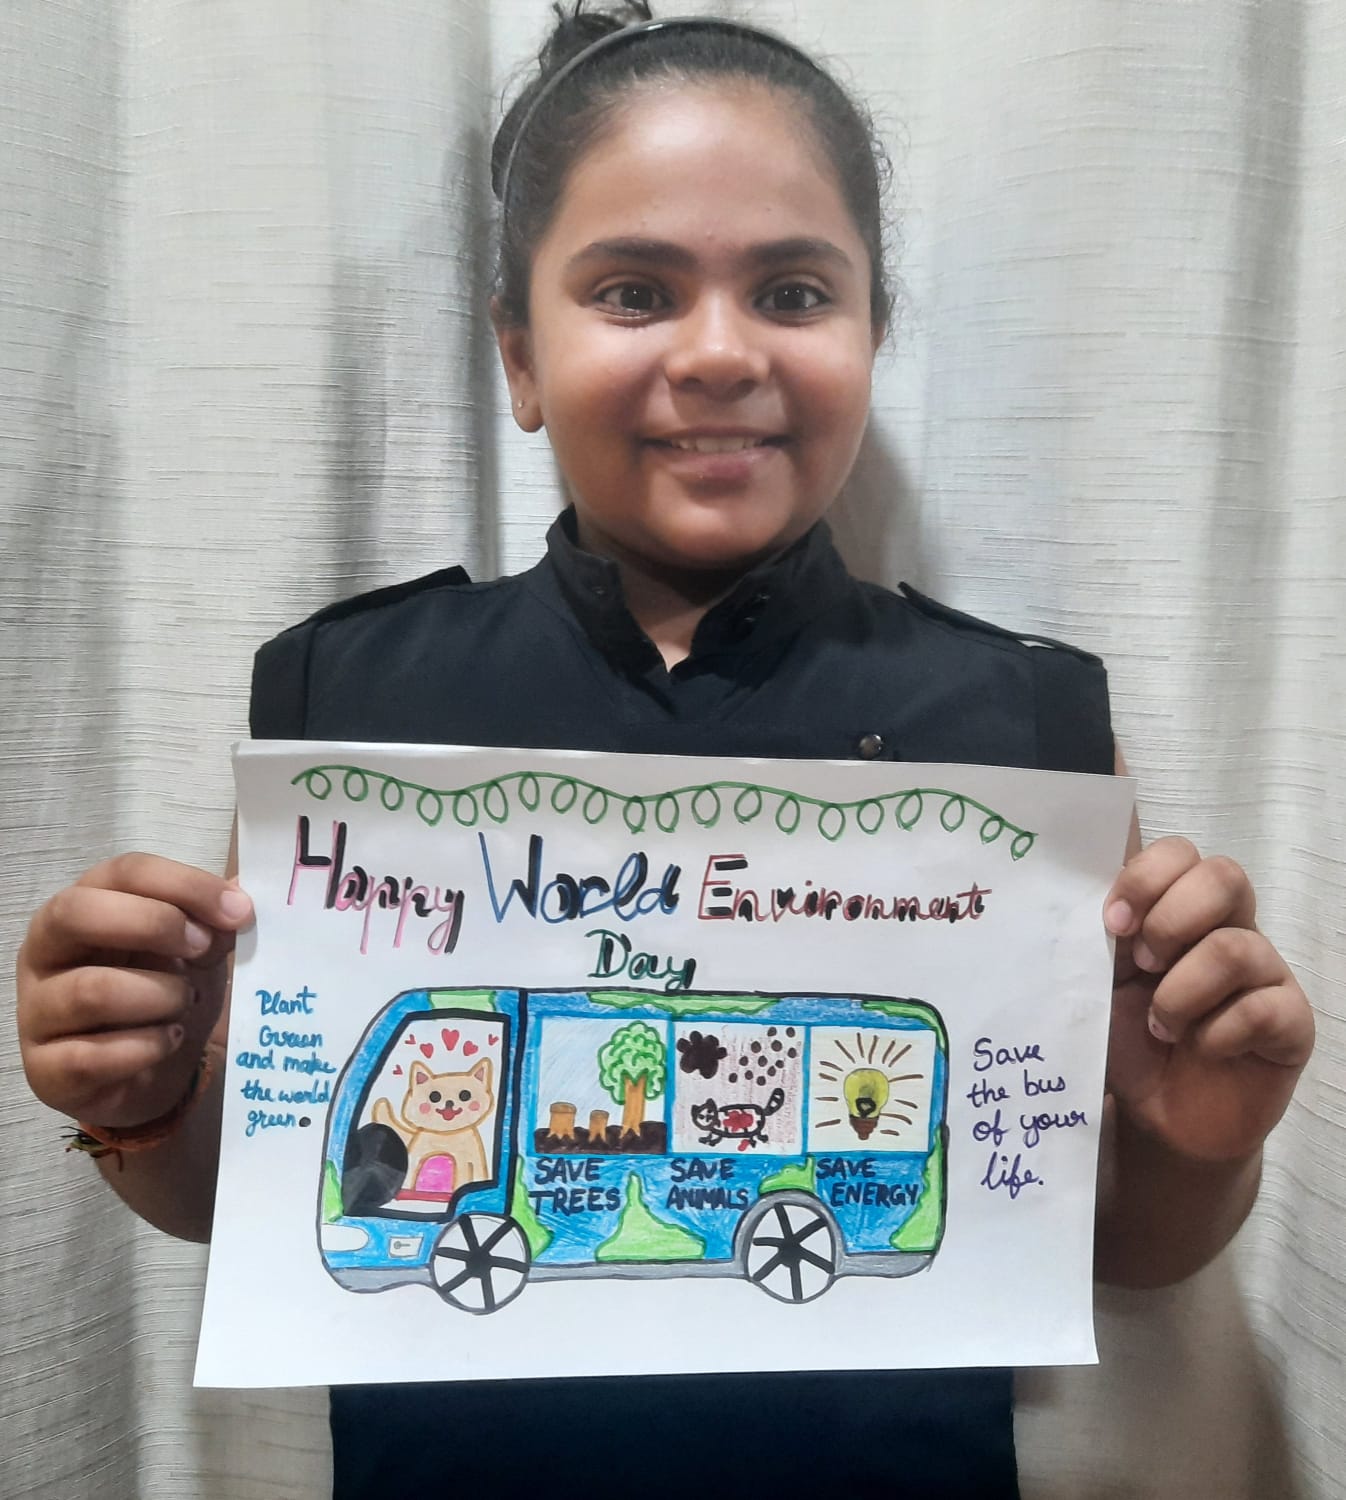 Happy World Environment
Day
Plant
Green
and make
the world
green.
SAVE
TREES
SAVE
ANIMALS
SAVE
ENERGY
Save
the bus
of your
life.